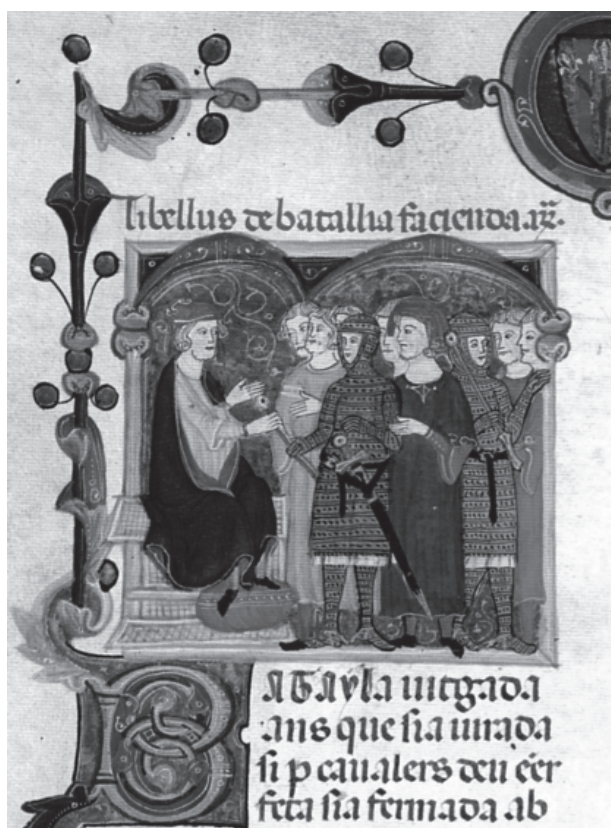 libellus de batallia facienda
BATAyla iutgada
ans que sia iurada
si p caualers deu éer
feta sia fermada ab